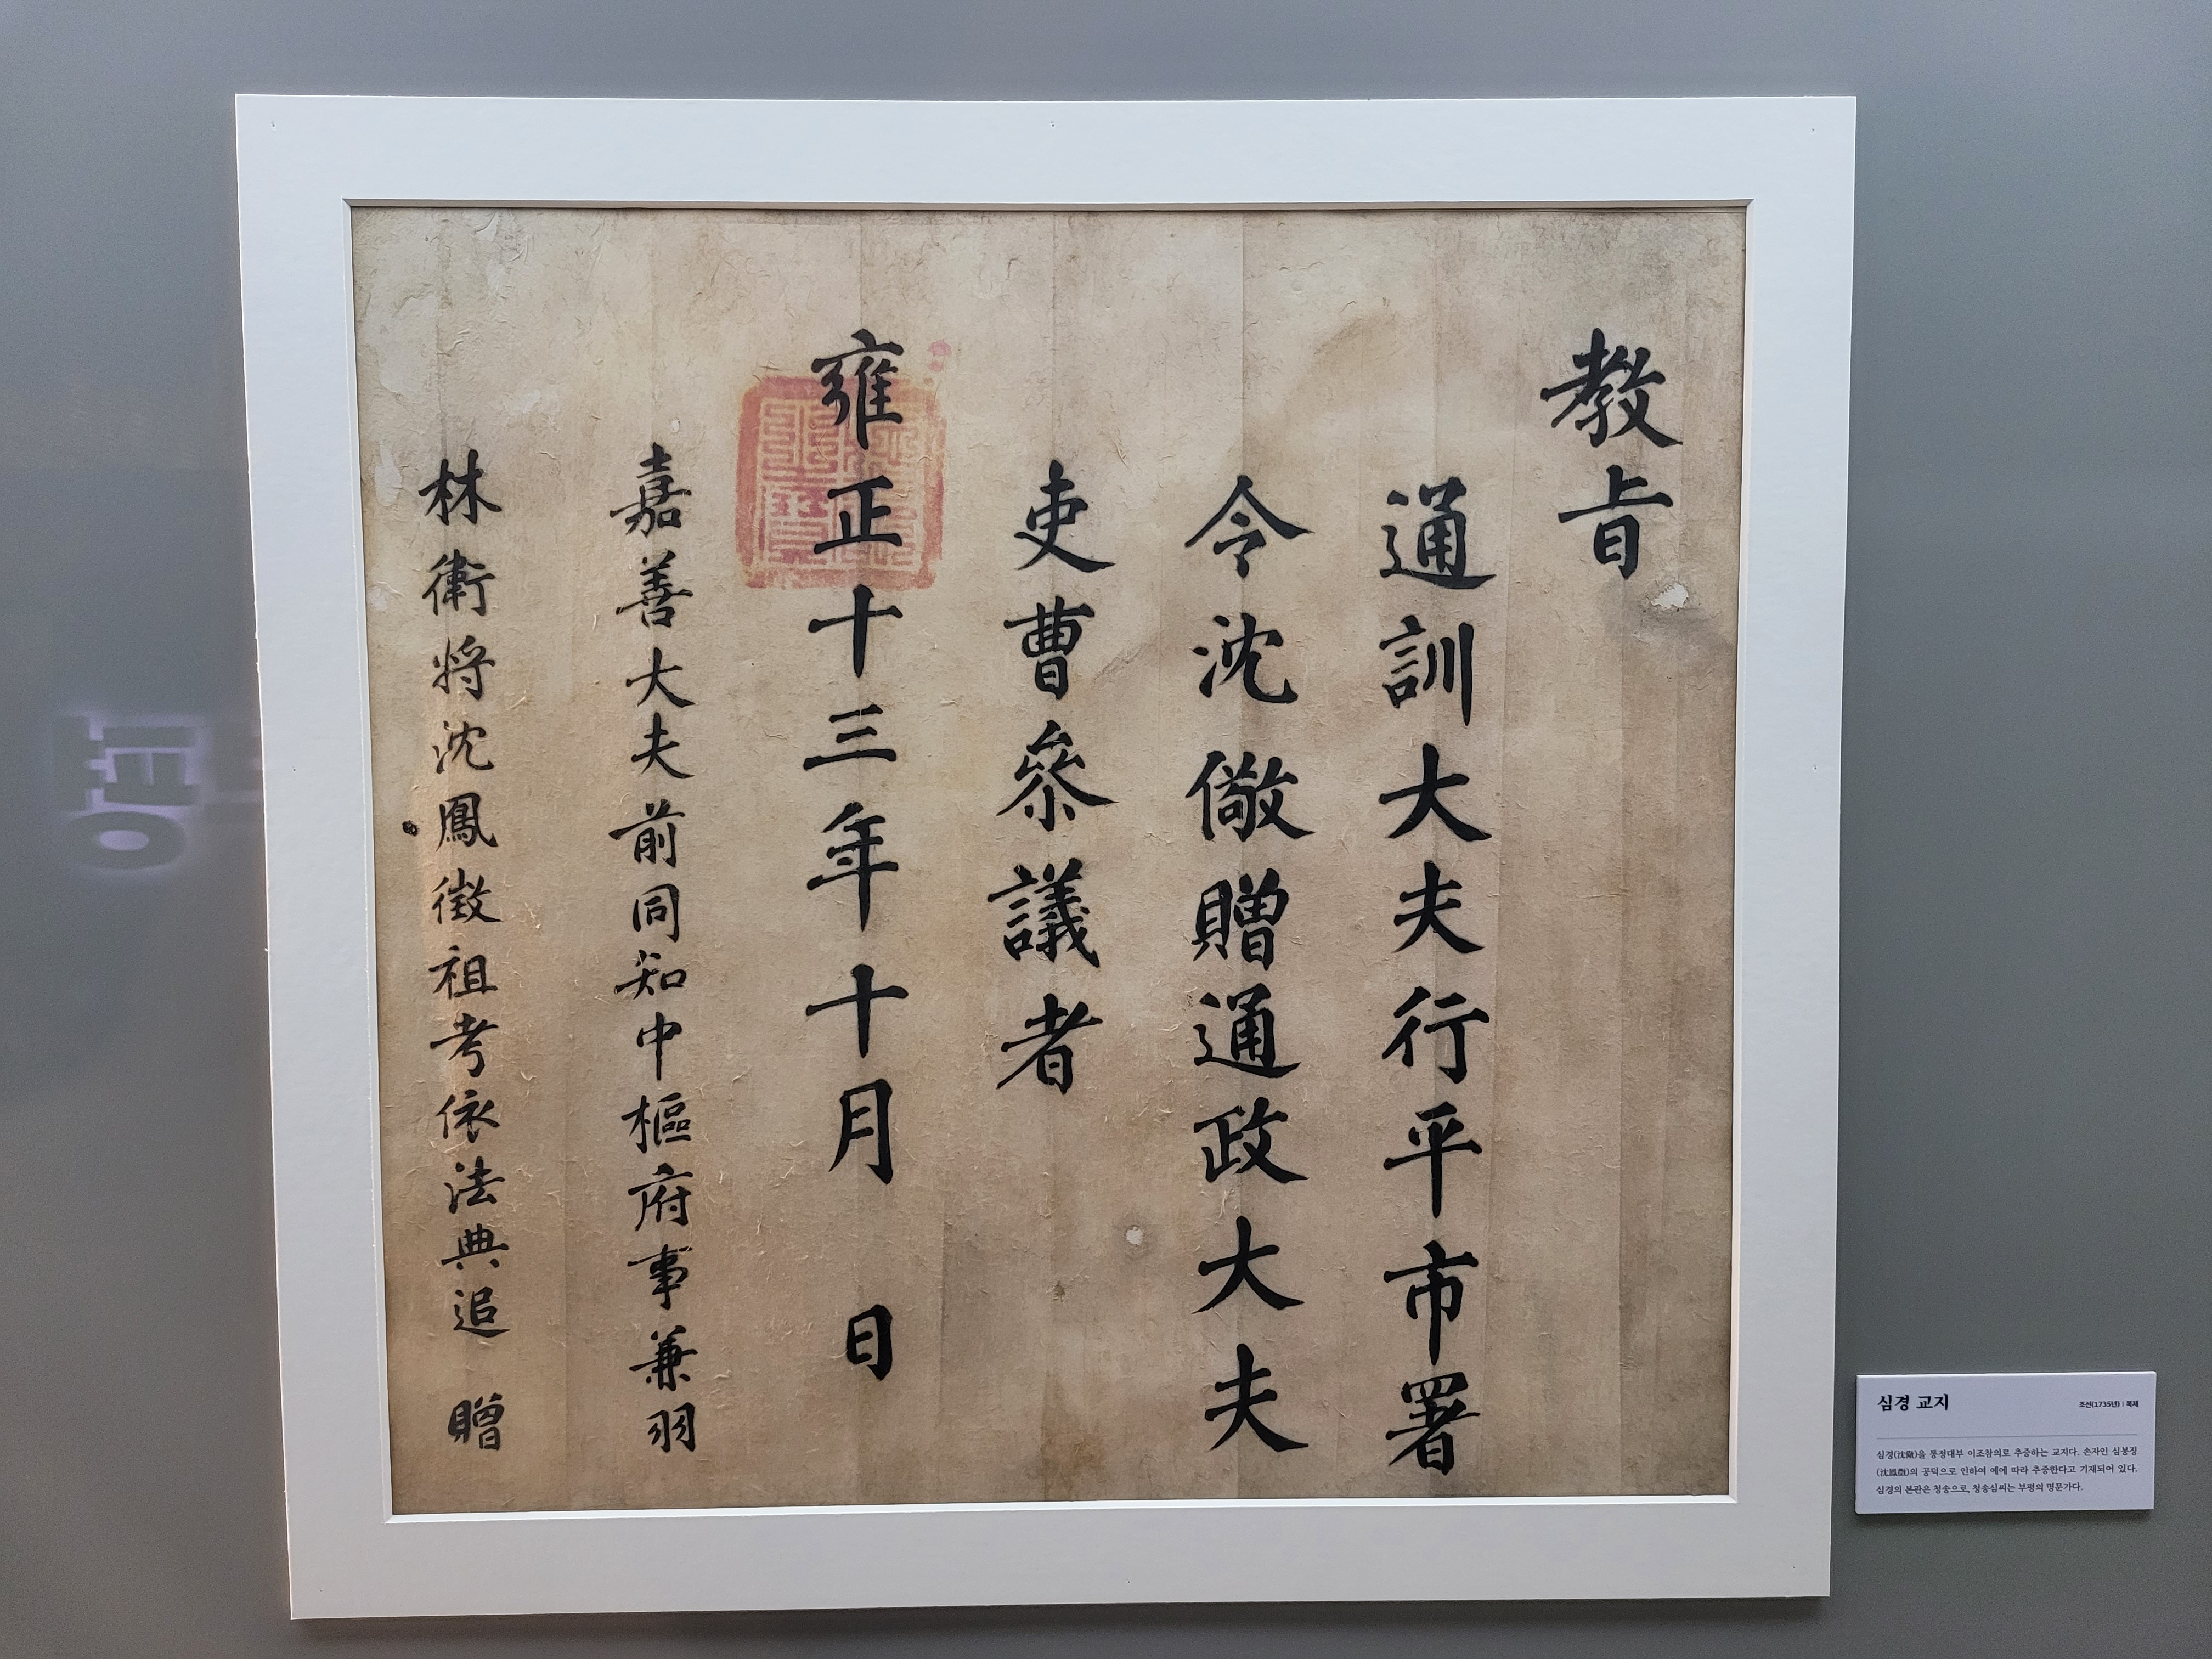 教旨
通訓大夫行平市署
令沈儆贈通政大夫
吏曹參議者
雍正十三年十月 日
嘉善大夫前同知中樞府事兼羽
林衛將沈鳳徵祖考依法典追 贈
심경 교지
조선(1735년) | 복제
심경(沈儆)을 통정대부 이조참의로 추증하는 교지다. 손자인 심봉징
(沈鳳徵)의 공덕으로 인하여 예에 따라 추증한다고 기재되어 있다.
심경의 본관은 청송으로, 청송심씨는 부평의 명문가다.